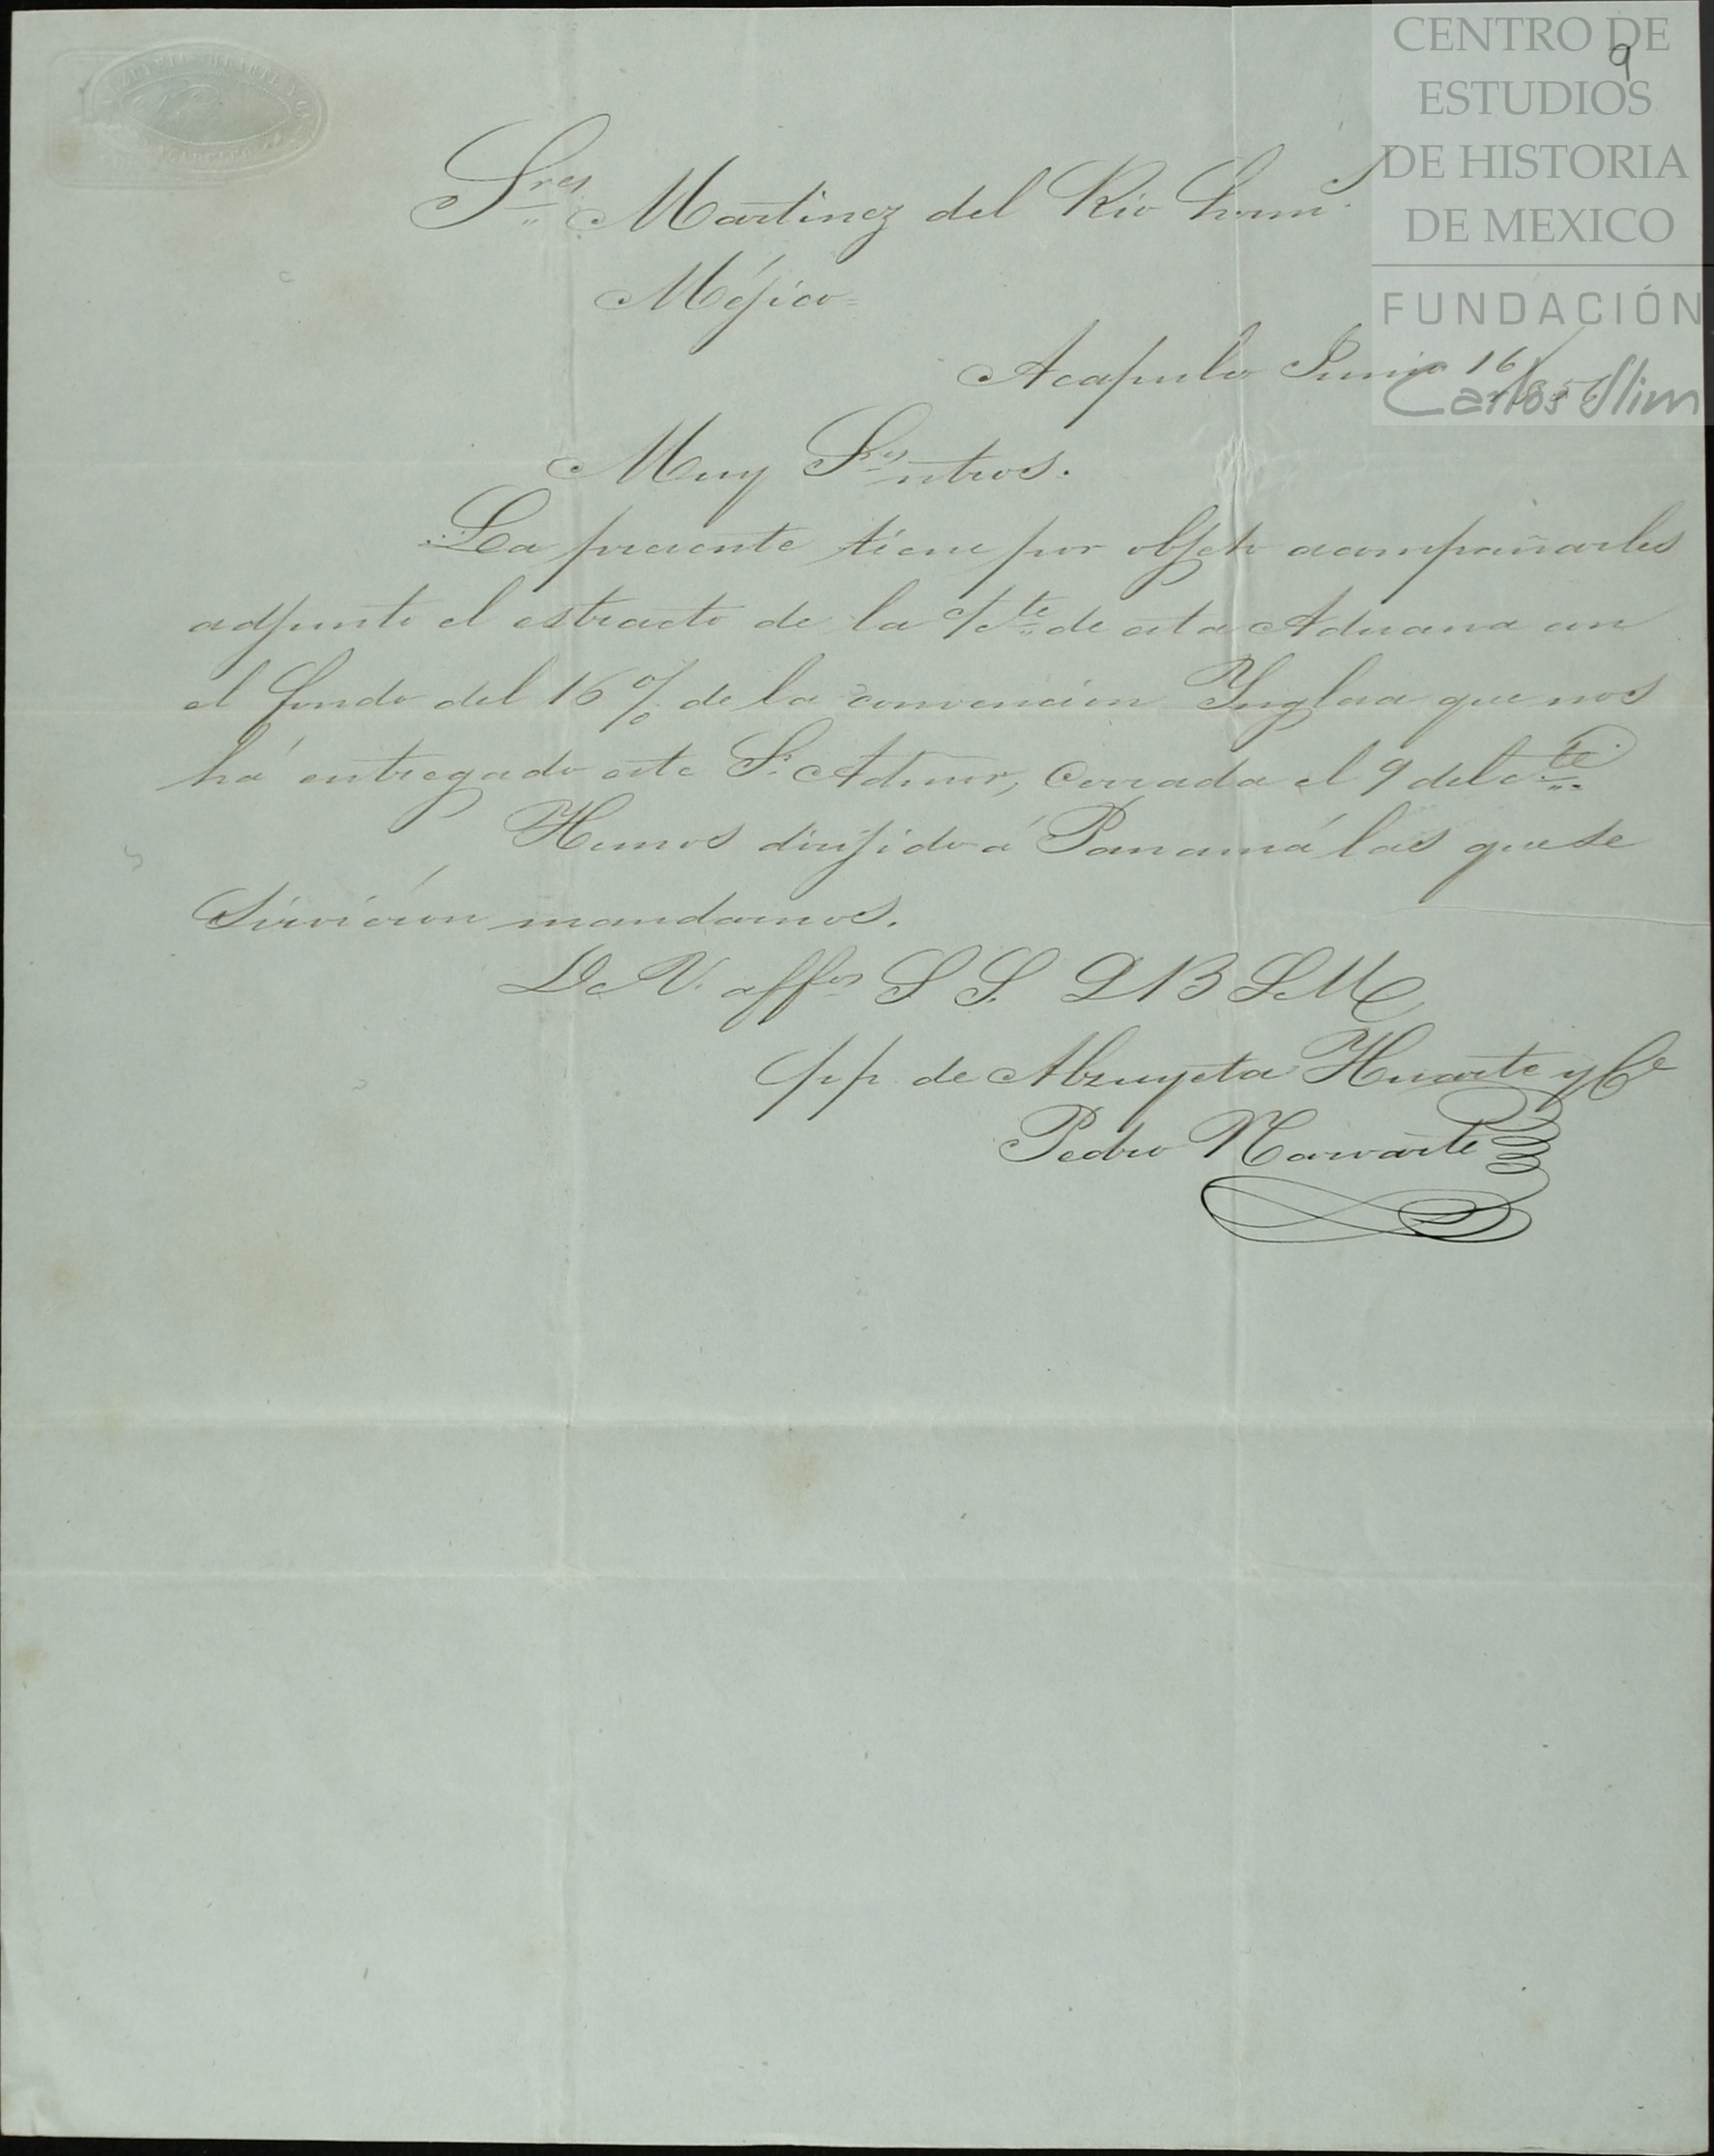 9
CENTRO DE
ESTUDIOS
DE HISTORIA
DE MEXICO
FUNDACIÓN
Carlos Slim
Sres Martinez del Rio herms.
Méjico
Acapulco Junio 16/
Muy Srs ntros.
La presente tiene por objeto acompañarles
adjunto el estracto de la c/cte de esta Aduana con
el fondo del 16 % de la convencion Ynglesa que nos
há entregado este Sr. Admor, cerrada el 9 del cte.
Hemos dirijido á Panamá las que se
sirvieron mandarnos.
De V. affos S S. Q B S M
pp. de Alzuyeta Huarte y Ca
Pedro Narvarte